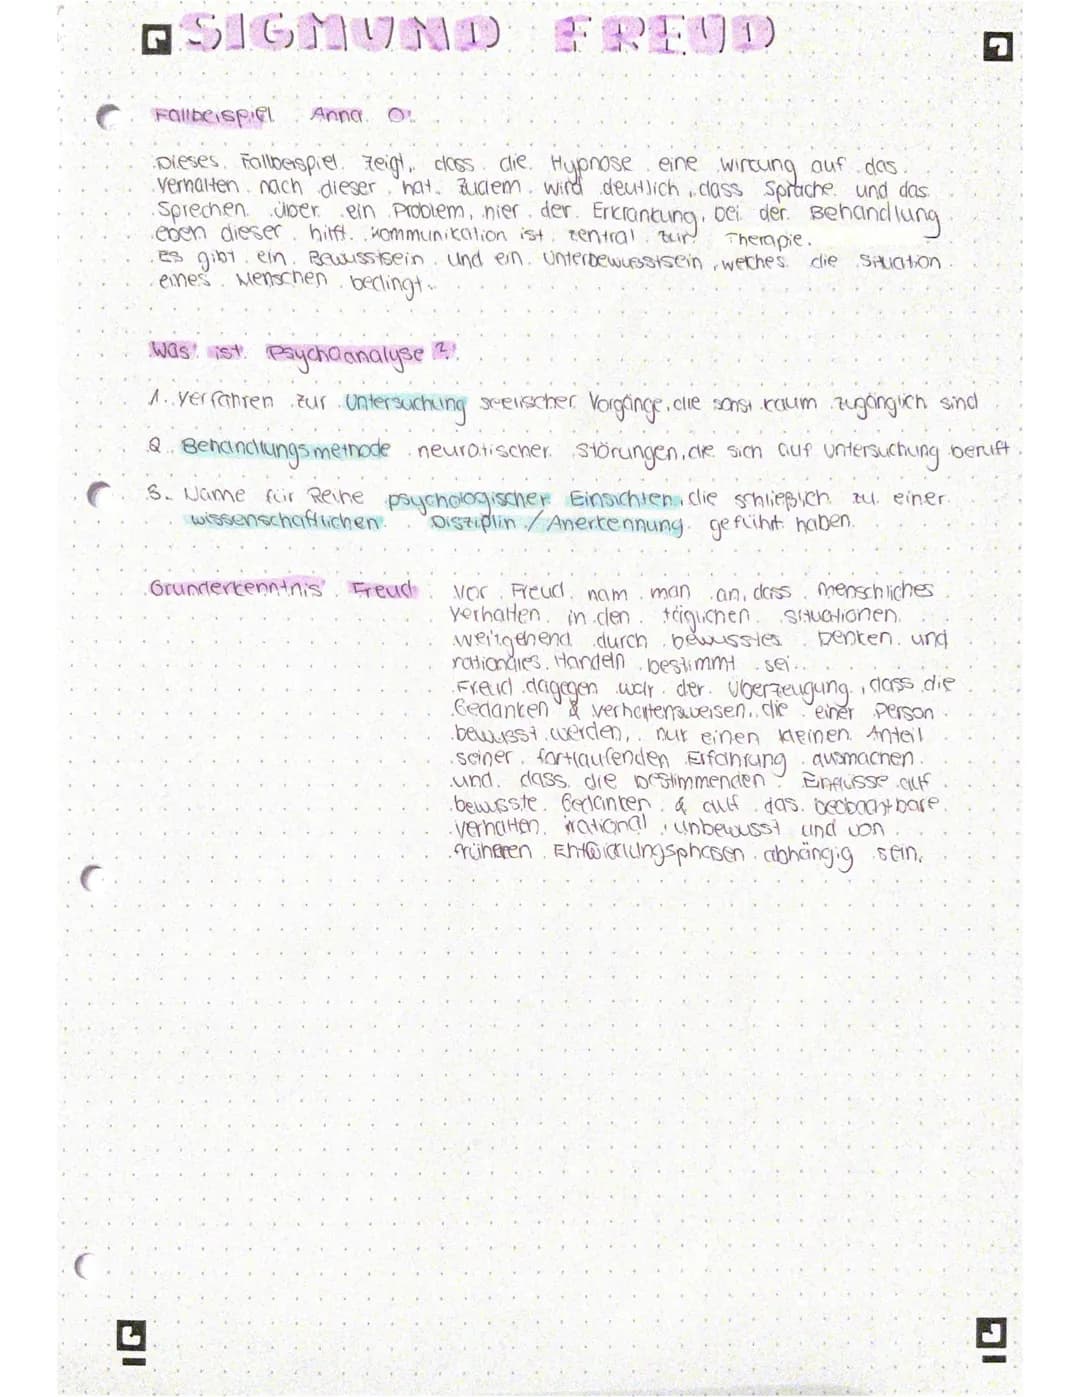 SIGMUND FREUD
Fallbeispiel Anna O.
Dieses Fallbeispiel zeigt, dass die Hypnose eine wirkung auf das
Verhalten nach dieser hat. Zudem wird deutlich, dass Sprache und das
Sprechen über ein Problem, hier der Erkrankung, bei der Behandlung
eben dieser hilft. Kommunikation ist zentral zur Therapie.
Es gibt ein Bewusstsein und ein Unterbewusstsein, welches die Situation
eines Menschen bedingt.
Was ist Psychoanalyse?
1. Verfahren zur Untersuchung seelischer Vorgänge, die sonst kaum zugänglich sind
2. Behandlungsmethode neurotischer Störungen, die sich auf Untersuchung beruft.
3. Name für Reihe psychologischer Einsichten, die schließlich zu einer
wissenschaftlichen Disziplin / Anerkennung geführt haben.
Grunderkenntnis Freud:
Vor Freud nam man an, dass menschliches
Verhalten in den täglichen Situationen
weitgehend durch bewusstes Denken und
rationales Handeln bestimmt sei.
Freud dagegen war der Überzeugung, dass die
Gedanken & Verhaltensweisen, die einer Person
bewusst werden, nur einen kleinen Anteil
seiner fortlaufenden Erfahrung ausmachen
und dass die bestimmenden Einflüsse auf
bewusste Gedanken & auf das beobachtbare
Verhalten irrational, unbewusst und von
früheren Entwicklungsphasen abhängig sein.